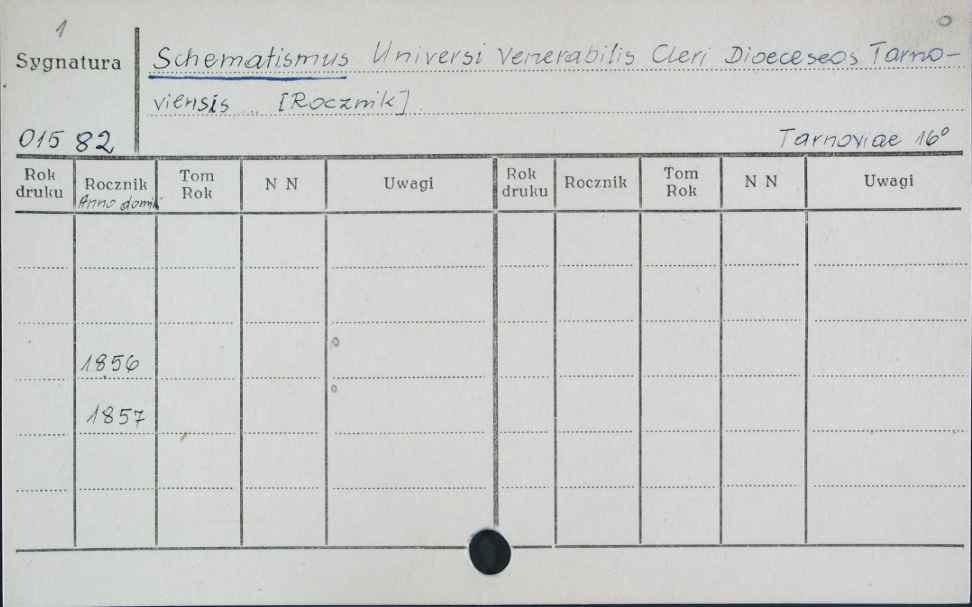 1
o
Sygnatura
Schematismus Universi Venerabilis Cleri Dioeceseos Tarno-
viensis ... [Rocznik].
015 82
Tarnoviae 16°
Rok druku Rocznik Anno domini Tom Rok N N Uwagi Rok druku Rocznik Tom Rok N N Uwagi
1856 o
1857 o